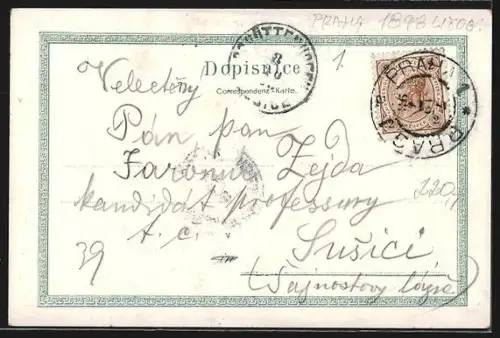 PRAHA 1898 LITOG.
1
Dopisnice
Correspondenz-Karte.
PRAHA 1 * PRAG
Velectěný
Pán pan
Zejda
kandidát professury
t. č.
220,-
39
Sušici